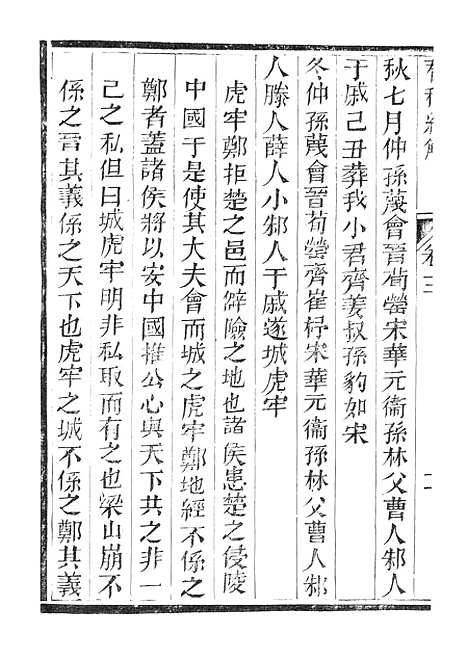 秋七月仲孫蔑會晉荀罃宋華元衞孫林父曹人邾人
于戚己丑葬我小君齊姜叔孫豹如宋
冬仲孫蔑會晉荀罃齊崔杼宋華元衞孫林父曹人邾
人滕人薛人小邾人于戚遂城虎牢
虎牢鄭拒楚之邑而僻險之地也諸侯患楚之侵陵
中國于是使其大夫會而城之虎牢鄭地經不係之
鄭者蓋諸侯將以安中國推公心與天下共之非一
己之私但曰城虎牢明非私取而有之也梁山崩不
係之晉其義係之天下也虎牢之城不係之鄭其義